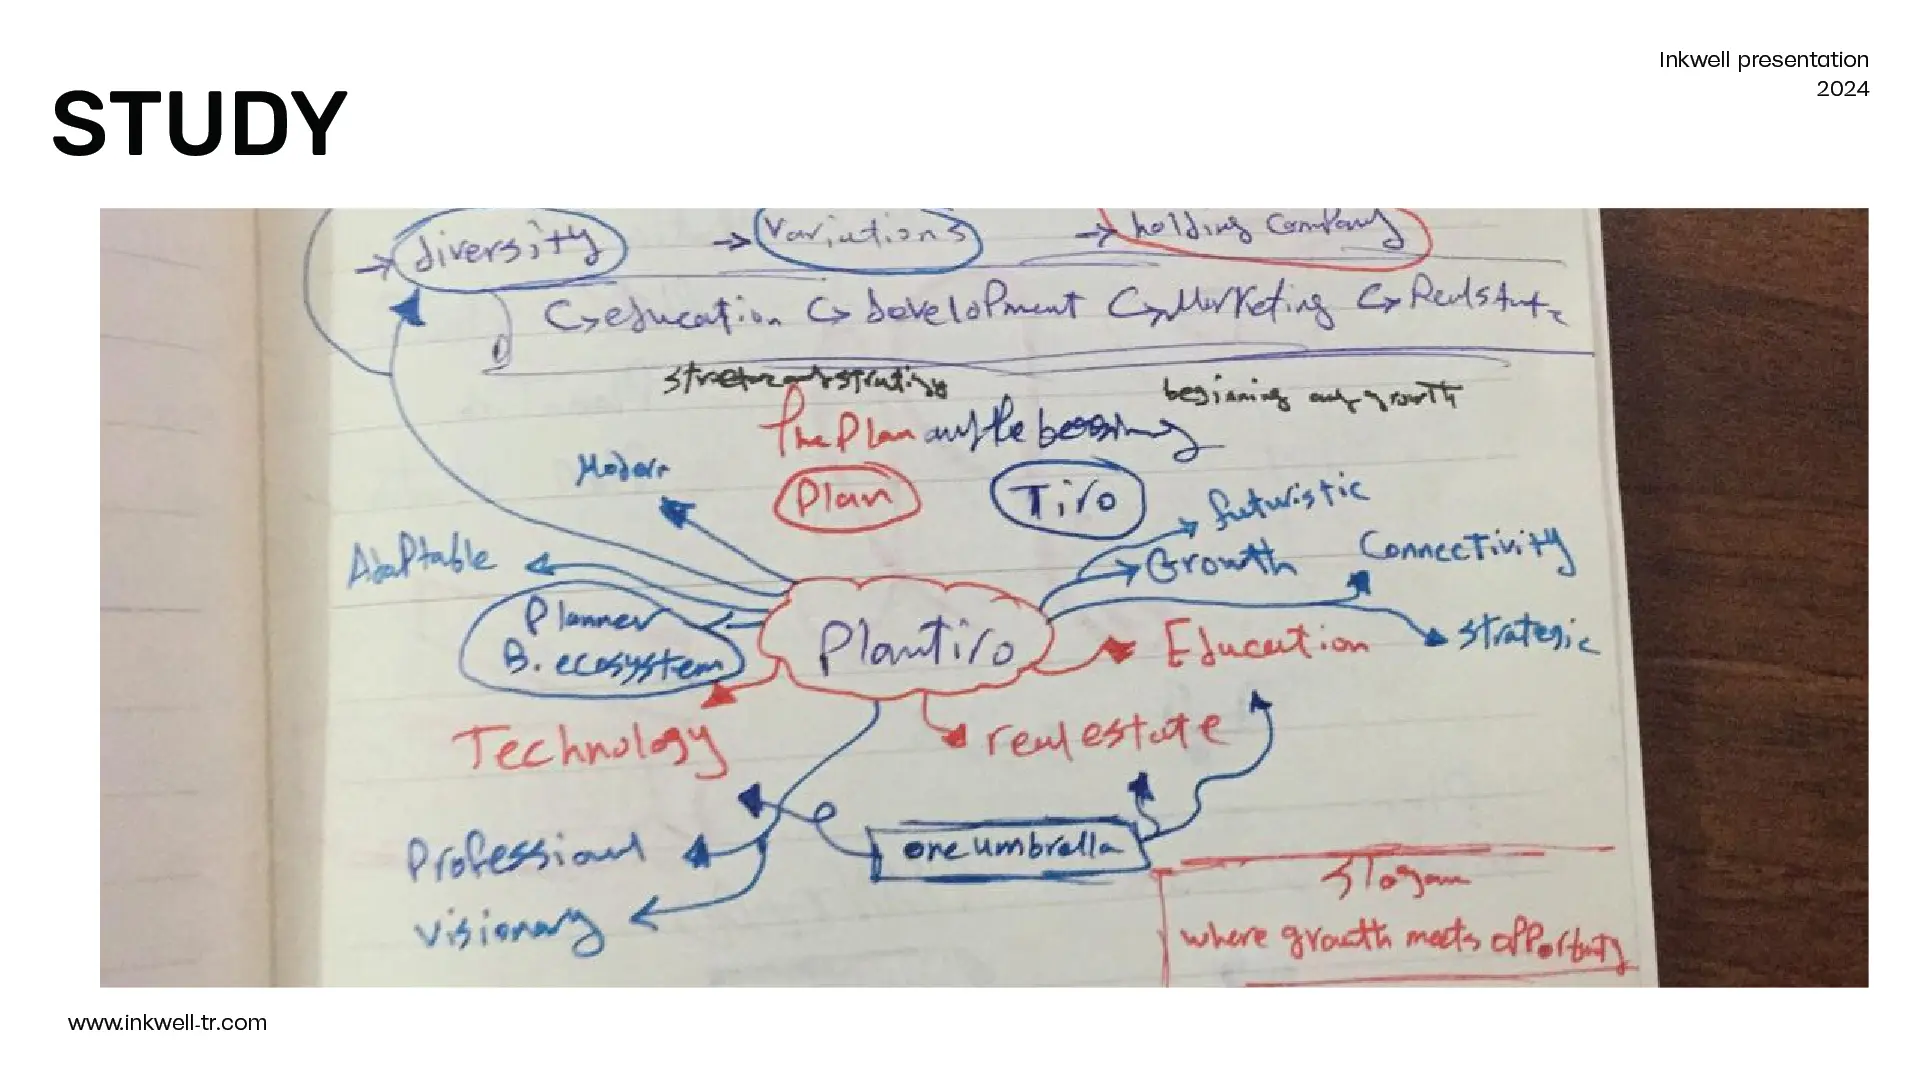 Inkwell presentation
2024
STUDY
diversity → variations → holding company
education development Marketing Realstate
beginning and growth
the Plan and the
Plan Tiro
Modern
futuristic
Adaptable
Growth
Connectivity
Planner
B. ecosystem
Plantiro
Education
strategic
Technology
real estate
Professional
one umbrella
visionary
slogan
where growth meets opportunity
www.inkwell-tr.com